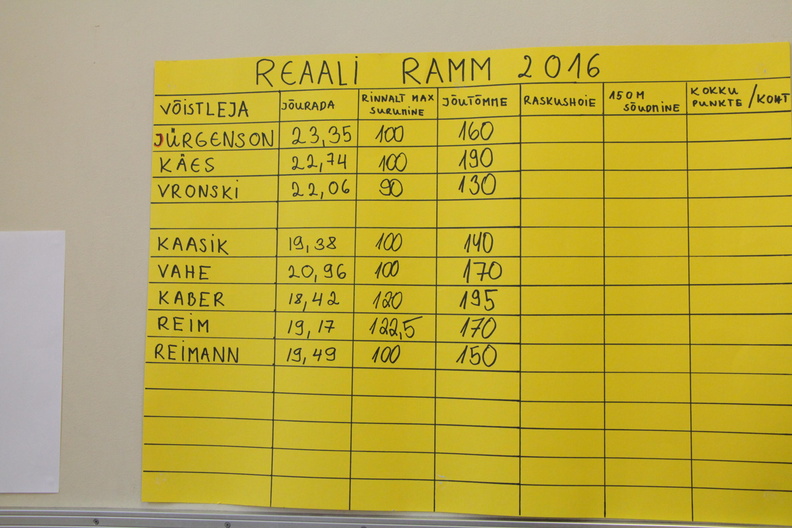 REAALI RAMM 2016
VÕISTLEJA JÕURADA RINNALT MAX SURUMINE JÕUTÕMME RASKUSHOIE 150M SÕUDMINE KOKKU PUNKTE/KOHT
JÜRGENSON 23,35 100 160
KÄES 22,74 100 190
VRONSKI 22,06 90 130
KAASIK 19,38 100 140
VAHE 20,96 100 170
KABER 18,42 120 195
REIM 19,17 122,5 170
REIMANN 19,49 100 150